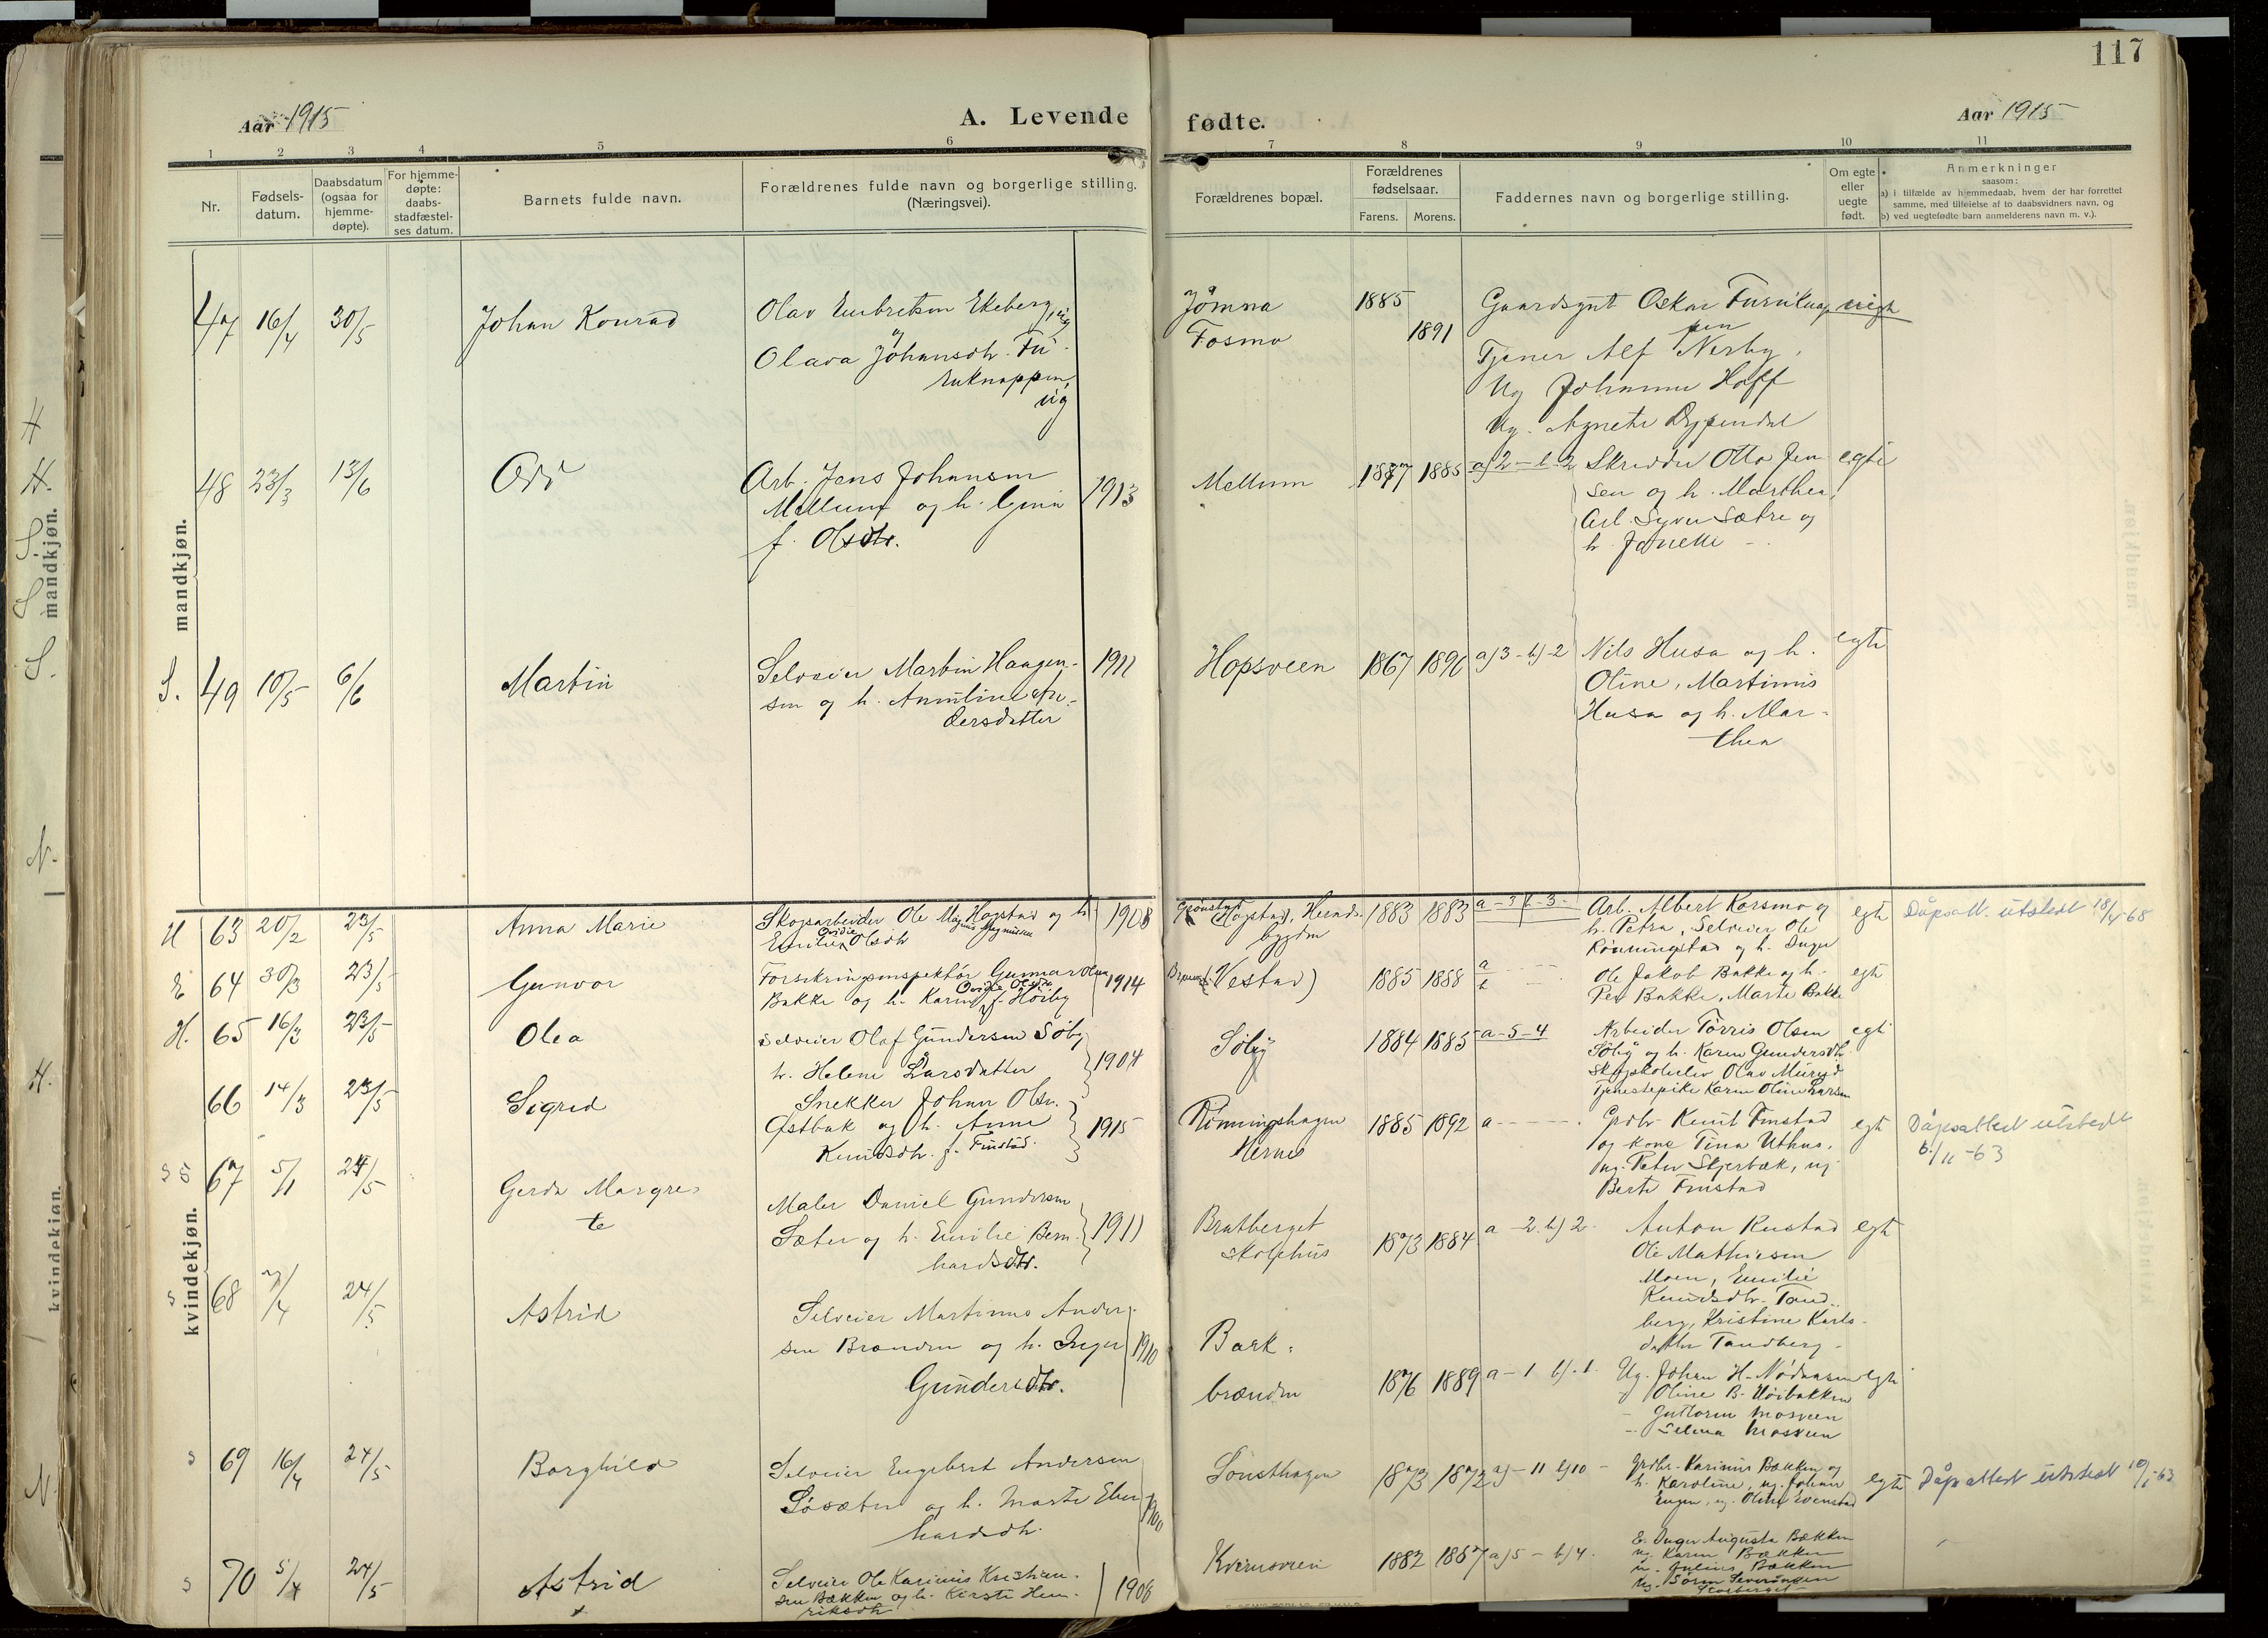 117
Aar 1915
A. Levende fødte.
Aar 1915
1 2 3 4 5 6 7 8 9 10 11
Nr.
Fødsels-
datum.
Daabsdatum
(ogsaa for
hjemme-
døpte).
For hjemme-
døpte:
daabs-
stadfæstel-
ses datum.
Barnets fulde navn.
Forældrenes fulde navn og borgerlige stilling.
(Næringsvei).
Forældrenes bopæl.
Forældrenes
fødselsaar.
Farens. Morens.
Faddernes navn og borgerlige stilling.
Om egte
eller
uegte
født.
Anmerkninger
saasom:
a) i tilfælde av hjemmedaab, hvem der har forrettet
samme, med tilføielse af to daabsvidners navn, og
b) ved uegtefødte barn anmelderens navn m. v.).
mandkjøn.
47 16/4 30/5 Johan Konrad
Olav Embretsen Ekeberg, ug
og
Olava Johansdtr. Fu-
ruknappen,
ug
Jømna 1885
Fosmo 1891
Gaardsgut Oskar Furuknap
pen
Tjener Alf Nerby,
Ug Johanne Hoff
Ug. Agnete Dypendal
uegte
48 23/3 13/6 Odd
Arb. Jens Johansen
Mellum og h. Gina
f. Olsdtr.
1913
Mellum 1887 1885 a) 2 - b. 2
Skredder Otto Jen
sen og h. Marthea,
Arb. Syver Sætre og
h. Janette -
egte
S. 49 10/5 6/6 Martin
Selveier Martin Haagen-
sen og h. Annline An-
dersdatter
1911
Hopsveen 1867 1890 a) 3 - b) - 2
Nils Husa og h.
Oline, Martinus
Husa og h. Mar-
thea
egte
kvindekjøn.
H 63 20/2 23/5 Anna Marie
Skogsarbeider Ole Magnus Magnussen Hogstad og h
Emilie Ovidie Olsdtr
1908
Grønstad (Hogstad), Hernes-
bygden
1883 1883 a - 3 b - 3 -
Arb. Albert Korsmo og
h. Petra, Selveier Ole
Rønningstad og h. Inger
egte
Dåpsatt. utstedt 18/4-68
E 64 30/3 23/5 Gunvor
Forsikringsinspektør Gunnar Olsen
Bakke og h. Karin Ovidie Olsdtr f. Høiby
1914
(Vestad) 1885 1888 a - b -
Ole Jakob Bakke og h.
Per Bakke, Marte Bakke
egte
H. 65 16/3 23/5 Olea
Selveier Olaf Gundersen Søby
h. Helene Larsdatter
1904
Søby 1884 1885 a - 5 - 4
Arbeider Torris Olsen
Søby og h. Karen Gundersdtr.
Skogskoleelev Olav
Tjenestepike Karen Oline Larsen
egte
66 14/3 23/5 Sigrid
Snekker Johan Olsen
Østbak og h. Anne
Knudsdtr. f. Finstad.
1915
Rønningshagen
Hernes
1885 1892 a -
Grdbr. Knut Finstad
og kone Tina Uthus,
ug. Peter Skjerbæk, ug
Berte Finstad
egte
Dåpsattest utstedt
6/11-63
S 67 5/1 24/5 Gerda Margre-
te
Maler Daniel Gundersen
Sæter og h. Emilie Bern-
hardsdtr.
1911
Bratberget
skolehus
1873 1884 a - 2. b) 2 -
Anton Rustad
Ole Mathiesen
Moen, Emilie
Knudsdtr. Tand-
berg, Kristine Karls-
datter Tandberg -
egte
S 68 7/4 24/5 Astrid
Selveier Martinus Ander-
sen Brænden og h. Inger
Gundersdtr.
1910
Bark-
brænden
1876 1889 a - 1 b) . 1.
Ug. Johan H. Nødaasen
" Oline B. Høibakken
- Guttorm Mosveen
- Selma Mosveen
egte
S 69 16/4 24/5 Borghild
Selveier Engebret Andersen
Søsæter og h. Marte Eben
hardsdtr.
1900
Sønsthagen 1873 1872 a) - 11 b) 10 -
Grdbr. Karinius Bækken og
h. Karoline, ug. Johan
Engen, ug. Oline Evenstad
egte
Dåpsattest utstedt 10/1-63
S 70 5/4 24/5 Astrid
Selveier Ole Karinius Kristian-
sen Bækken og h. Kirsti Hen-
riksdtr
1906
Kvernsveen 1882 1887 a) 5 - b) 4.
E. Inger Augusta Bækken
u. Karen Bækken
u. Julius Bækken
Ug. Søren Severinsen